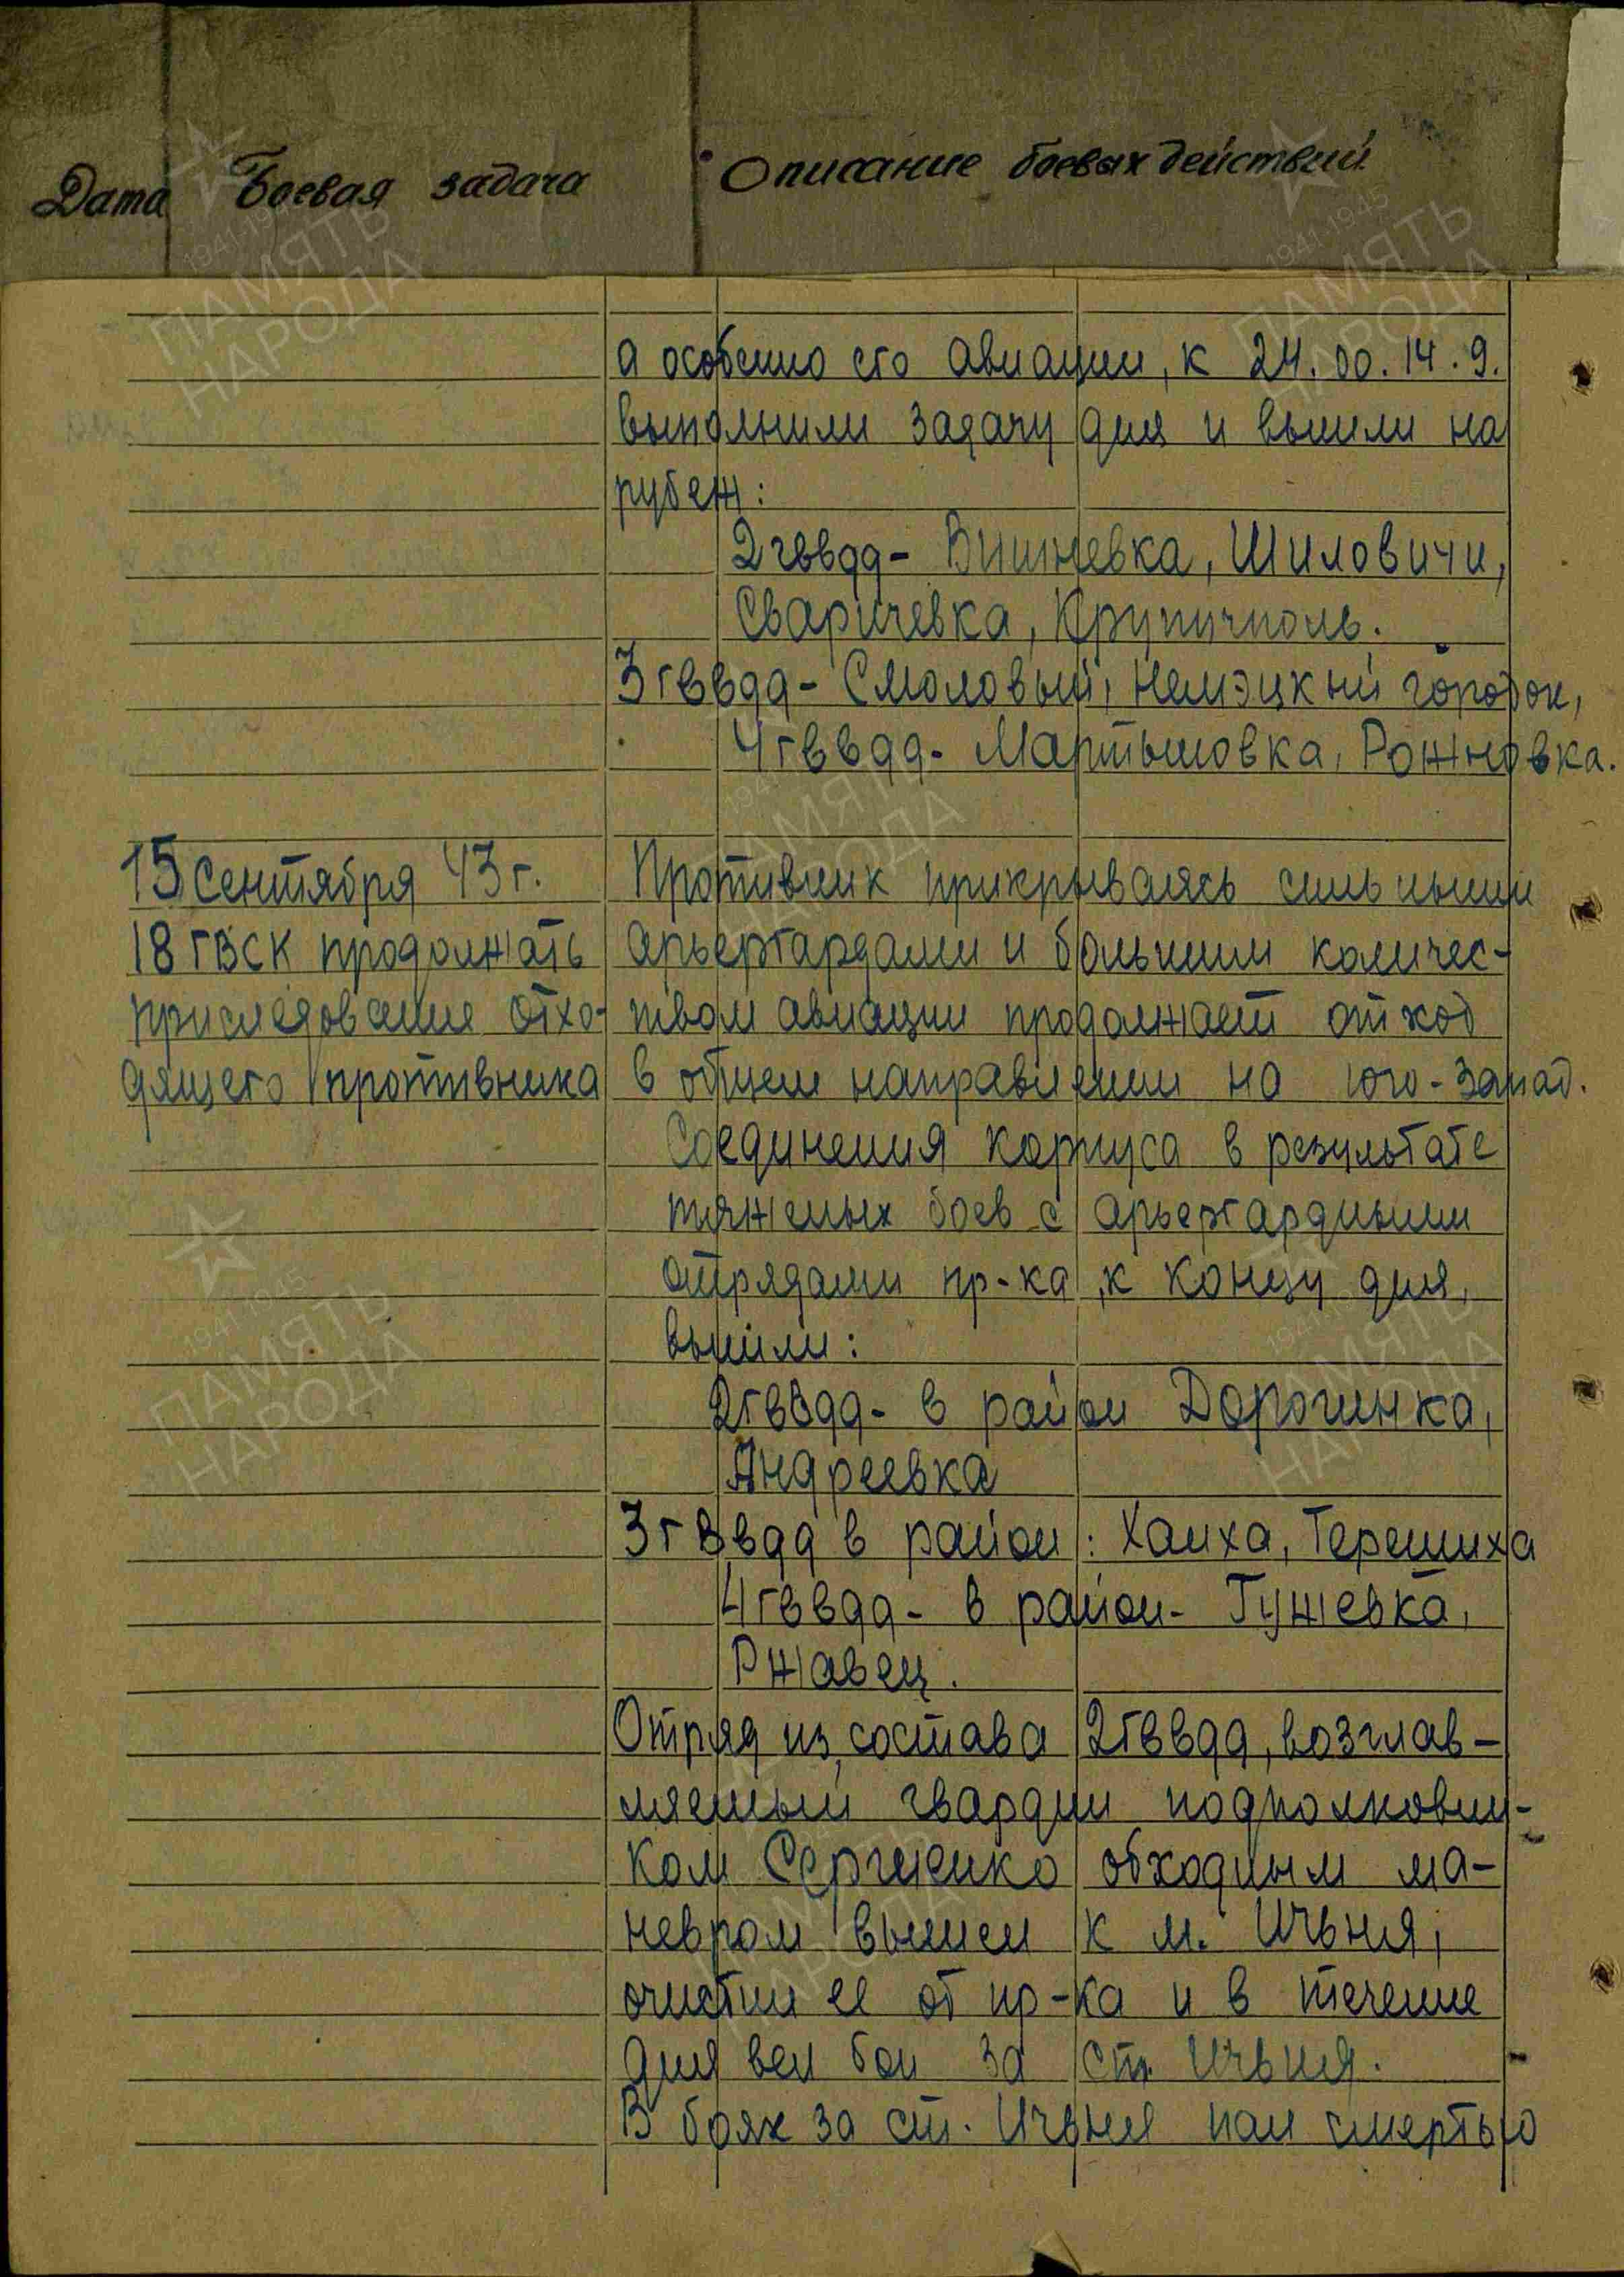 Дата Боевая задача Описание боевых действий
а особенно его авиации, к 24.00.14.9.
выполнили задачу дня и вышли на
рубеж:
2гввдд- Вишневка, Шиловичи,
Сваричевка, Крупичполь.
3гввдд- Смоловый, Немэцкий городок,
4гввдд- Мартыновка, Рожновка.
15 сентября 43г.
18 гвск продолжать
приследование отхо-
дящего противника
Противник прикрываясь сильными
арьергардами и большим количес-
твом авиации продолжает отход
в общем направлении на юго-запад.
Соединения корпуса в результате
тяжелых боев с арьергардными
отрядами пр-ка, к концу дня,
вышли:
2гввдд- в район Дорогинка,
Андреевка
3гввдд в район: Хаиха, Терешиха
4гввдд- в район- Гужевка,
Ржавец.
Отряд из состава 2гввдд, возглав-
ляемый гвардии подполковни-
ком Сергиенко обходным ма-
невром вышел к м. Ичьня,
очистил ее от пр-ка и в течение
дня вел бои за ст. Ичьня.
В боях за ст. Ичьня пал смертью
ПАМЯТЬ
НАРОДА
1941-1945
ПАМЯТЬ
НАРОДА
1941-1945
ПАМЯТЬ
НАРОДА
1941-1945
ПАМЯТЬ
НАРОДА